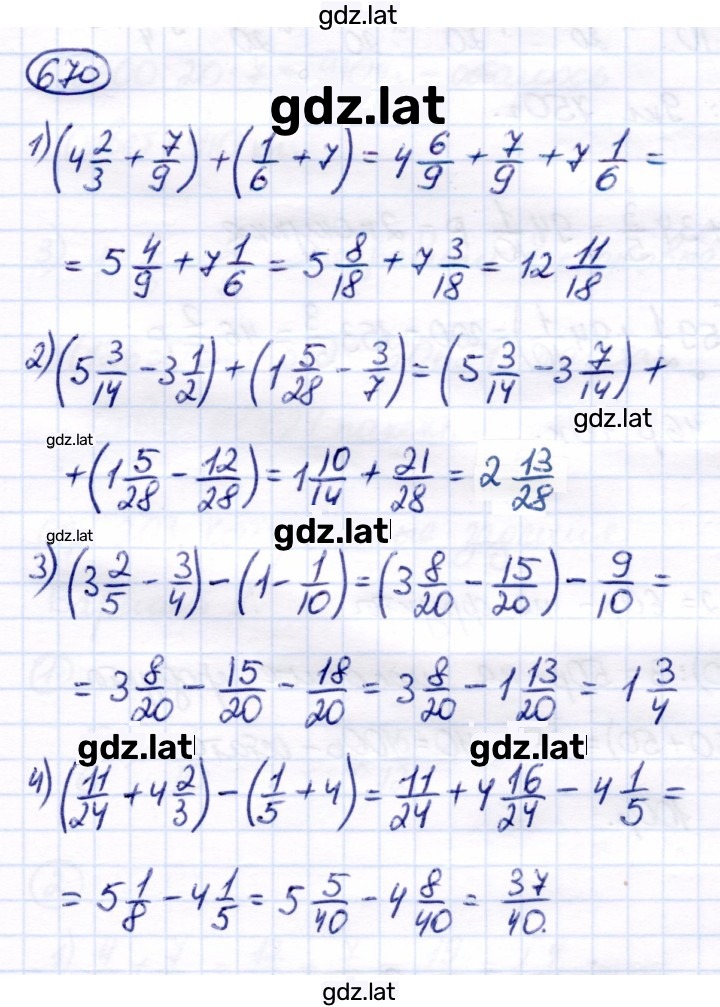 gdz.lat
670
gdz.lat
1) (4 2/3 + 7/9) + (1/6 + 7) = 4 6/9 + 7/9 + 7 1/6 =
= 5 4/9 + 7 1/6 = 5 8/18 + 7 3/18 = 12 11/18
2) (5 3/14 - 3 1/2) + (1 5/28 - 3/7) = (5 3/14 - 3 7/14) +
gdz.lat
gdz.lat
+ (1 5/28 - 12/28) = 1 10/14 + 21/28 = 2 13/28
gdz.lat
gdz.lat
3) (3 2/5 - 3/4) - (1 - 1/10) = (3 8/20 - 15/20) - 9/10 =
= 3 8/20 - 15/20 - 18/20 = 3 8/20 - 1 13/20 = 1 3/4
gdz.lat gdz.lat
4) (11/24 + 4 2/3) - (1/5 + 4) = 11/24 + 4 16/24 - 4 1/5 =
= 5 1/8 - 4 1/5 = 5 5/40 - 4 8/40 = 37/40.
gdz.lat